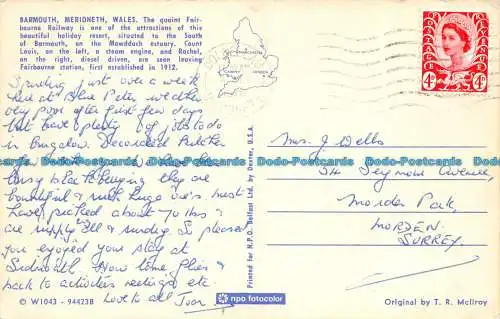 BARMOUTH, MERIONETH, WALES. The quaint Fair-
bourne Railway is one of the attractions of this
beautiful holiday resort, situated to the South
of Barmouth, on the Mawddach estuary. Count
Louis, on the left, a steam engine, and Rachel
on the right, diesel driven, are seen leaving
Fairbourne station, first established in 1912.
Spending just over a week
here at Blue Peter, weather
very poor after first few days
but have plenty of jobs to do
in Bungalow. Decorated Kitchen
busy blackberrying they are
beautiful & such huge ones. must
have picked about 70 lbs &
are supply all & sundry. So pleased
you enjoyed your stay at
Sidmouth. How time flies
back to activities meetings etc.
Love to all Joan
© W1043 - 94423B
Printed for N.P.O. Belfast Ltd. by Dexter, U.S.A.
npo fotocolor
4D 4D
Mrs. J. Wells
34 Seymour Avenue,
Morden Park,
MORDEN.
SURREY.
Original by T. R. McIlroy
Dodo-Postcards Dodo-Postcards Dodo-Postcards Dodo-Postcards